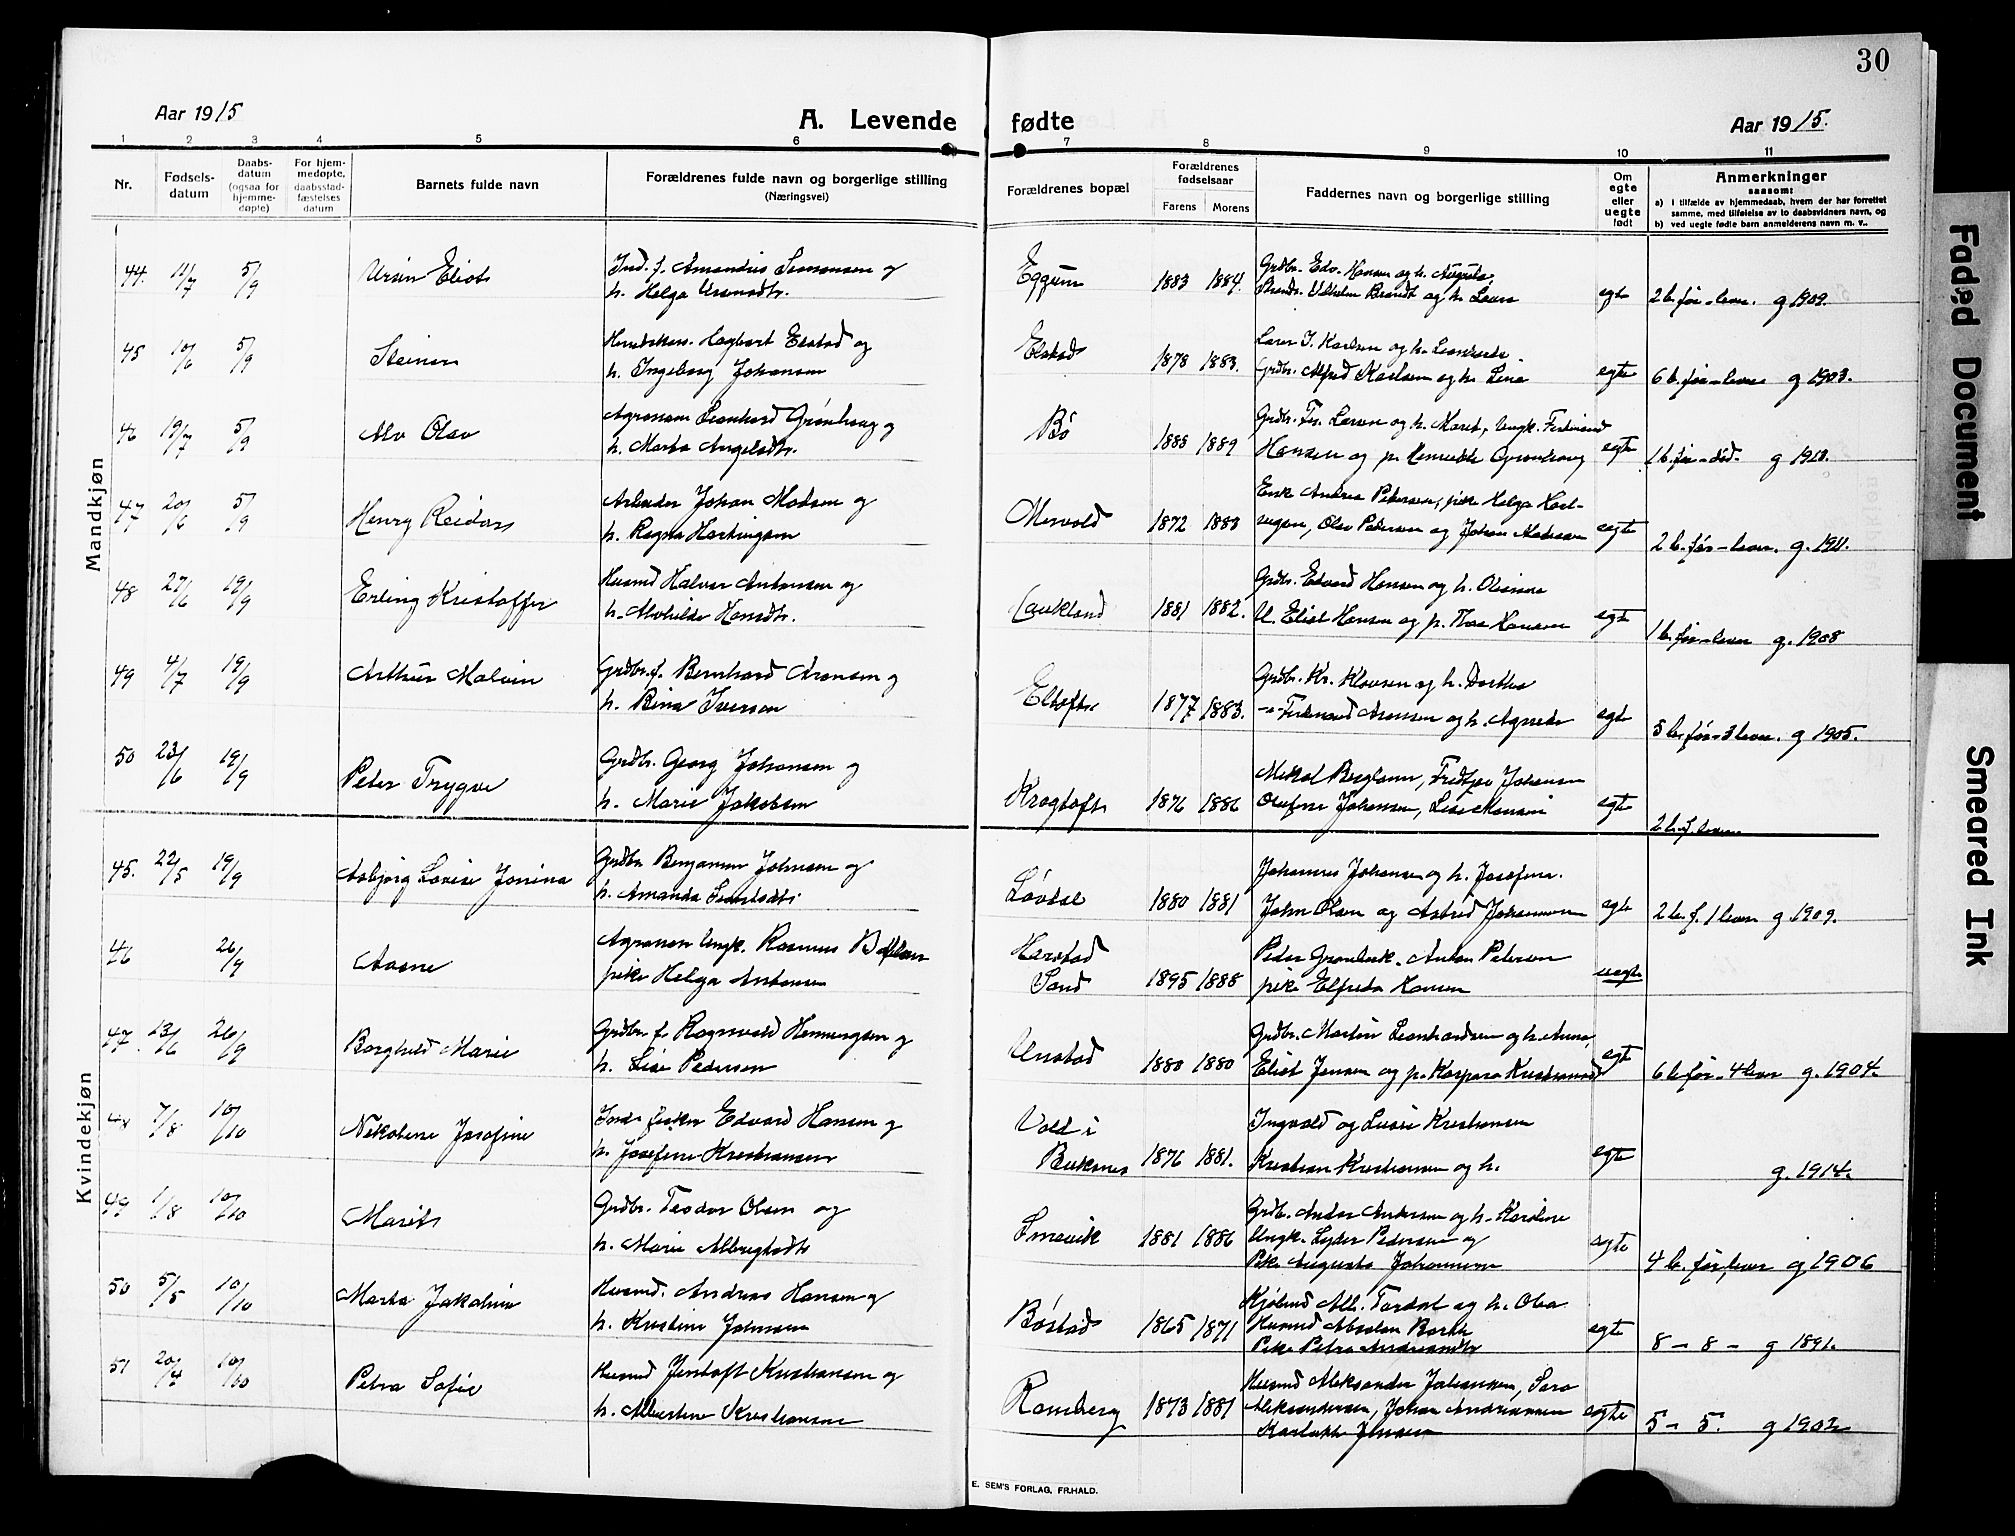 30
Aar 1915
A. Levende fødte
Aar 1915.
1 2 3 4 5 6 7 8 9 10 11
Nr.
Fødsels-
datum
Daabs-
datum
(ogsaa for
hjemme-
døpte)
For hjem-
medøpte,
daabsstad-
fæstelses
datum
Barnets fulde navn
Forældrenes fulde navn og borgerlige stilling
(Næringsvei)
Forældrenes bopæl
Forældrenes
fødselsaar
Farens Morens
Faddernes navn og borgerlige stilling
Om
egte
eller
uegte
født
Anmerkninger
saasom:
a) i tilfælde av hjemmedaab, hvem der har forrettet
samme, med tilføielse av to daabsvidners navn, og
b) ved uegte fødte barn anmelderens navn m. v..
Mandkjøn
44. 11/7 5/9 Ursin Eliot
Ind. f. Amandus Simonsen og
h. Helga Ursinsdtr.
Eggum 1883 1884.
Grdbr. Edv. Hansen og h. Augusta,
Vilhelm Brandt og h. Laura
egte 2 b. før - lever. g 1909.
45 10/6 5/9 Steinar
Hagbart Elstad og
h. Ingeborg Johansen
Elstad 1878 1883.
Lærer J. Karlsen og h.
Grdbr. Alfred Karlsen og h. Lina
egte 6 b. før - lever g 1903.
46 19/7 5/9 Alv Olav
Agronom Leonhard Grønhaug og
h. Marta Angelsdtr.
Bø 1888 1889
Grdbr. Larsen og h. Maret, Ungk. Ferdinand
Hansen og p. Grønhaug
egte 1 b. før - død. g 1913.
47 20/6 5/9 Henry Reidar
Arbeider Johan Madsen og
h. Ragna Hartvigsen
Mervold 1872 1883
Enk. Andrea Petersen, pike Helga
Olav Pedersen og Johan
egte 2 b. før - lever. g. 1911.
48 27/6 19/9 Erling Kristoffer
Husmd Halvor Antonsen og
h. Alvhilde Hansdtr.
Laukland 1881 1882.
Grdbr. Edvard Hansen og h.
U. Eliot Hansen og p. Thea Hansen
egte 1 b. før - lever g. 1908
49 4/7 19/9 Arthur Malvin
Grdbr. f. Bernhard Aronsen og
h. Rina Iversen
Eltoft 1877 1883.
Grdbr. Kr. Klausen og h. Dorthea
-"- Ferdinand Aronsen og h. Agnete
egte 5 b. før - 3 lever. g 1905.
50 23/6 19/9 Peter Trygve
Grdbr. Georg Johansen og
h. Marie Jakobsen
Krogtoft 1876 1886
Mikal Berglann, Fredtjov Johansen
Johansen, Lise
egte 2 b. f. lever
Kvindekjøn
45. 22/5 19/9 Asbjørg Lovise Jonina
Grdbr Benjamin Johnsen og
h. Amanda
Løvdal 1880 1881
Johannes Johansen og h. Josefine.
John Olsen og Astrid Johannesen
egte 2 b. f. 1 lever g 1909.
46 26/9 Aasne
Agronom Ungk. Rasmus
pike Helga Antonsen
Harstad
Sand
1895 1888
Peder Grønbæk. Anton Petersen
pike Elfrida Hansen
uegte
47. 13/6 26/9 Borghild Marie
Grdbr. f. Ragnvald Henningsen og
h. Lise Pedersen
Unstad 1880 1880
Grdbr. Martin Leonhardsen og h. Anna,
Eliot Jensen og p. Kaspara
egte 6 b. før - 4 lever g. 1904.
48 7/8 10/10 Nikoline Josefine
Inds. fisker Edvard Hansen og
h. Josefine Kristiansen
Vold i
Buksnes
1876 1881.
Ingvald og Kristiansen
Kristian Kristiansen og h.
egte g. 1914.
49 1/8 10/10 Marit
Grdbr. Teodor Olsen og
h. Marie Albrigtsdtr
Smevik 1881 1886
Grdb. Andor Andersen og h. Karoline
Ungk. Lyder Pedersen og
Pike Augusta Johannesen
egte 4 b. før, lever og 1906
50 5/5 10/10 Marta Jakobine
Husmd. Andreas Hansen og
h. Kristine Johnsen
Bøstad 1865 1871
Kjøbmd Alb. Tordal og h. Olea
Husmd Absalon
Pike Petra Andreasdtr
egte 8 - 8 - g 1891.
51 20/4 10/10 Petra Sofie
Husmd Jentoft Kristiansen og
h. Albertine Kristiansen
Ramberg 1873 1881
Husmd Aleksander Johansen, Sara
Aleksandersen, Johan Andreassen
Jensen
egte 5 - 5. g 1902
E. SEM'S FORLAG, FR.HALD.
Faded Document
Smeared Ink